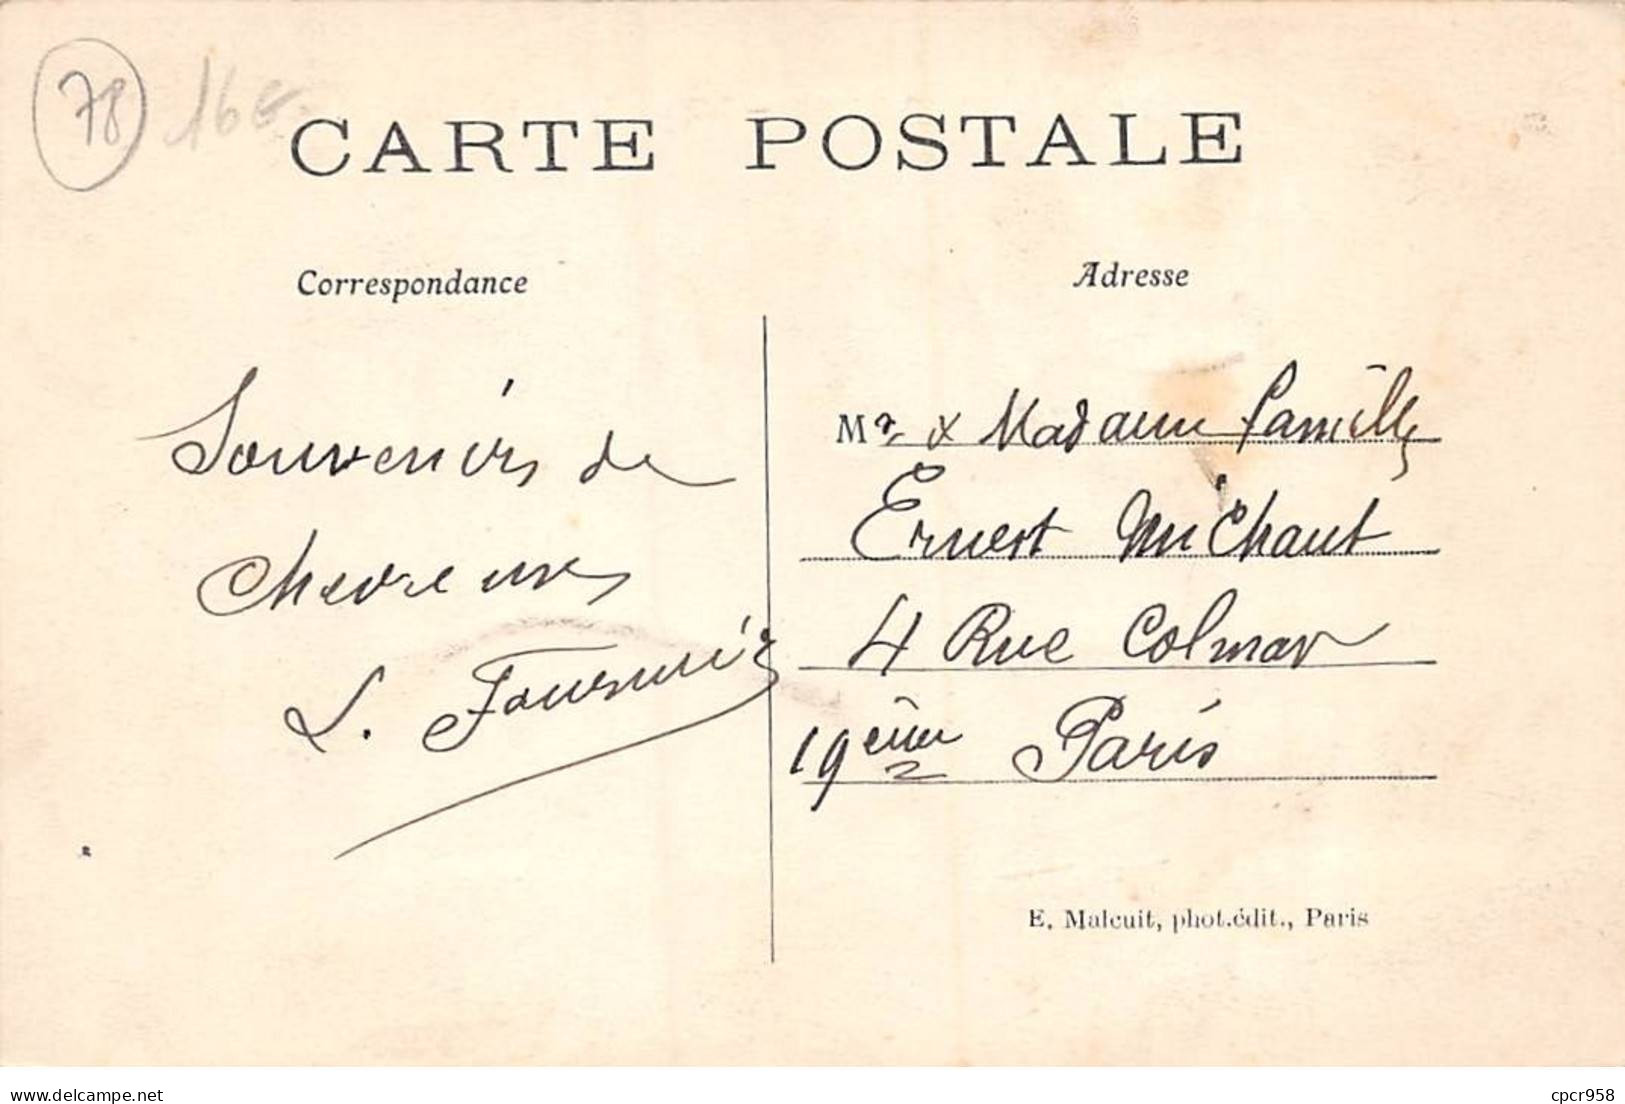 78 16€
CARTE POSTALE
Correspondance
Adresse
Souvenirs de
Chevreuse
L. Fournier
Mr & Madame famille
Ernest Michaut
4 Rue Colmar
19ème Paris
E. Malcuit, phot.édit., Paris
www.delcampe.net
cpcr958